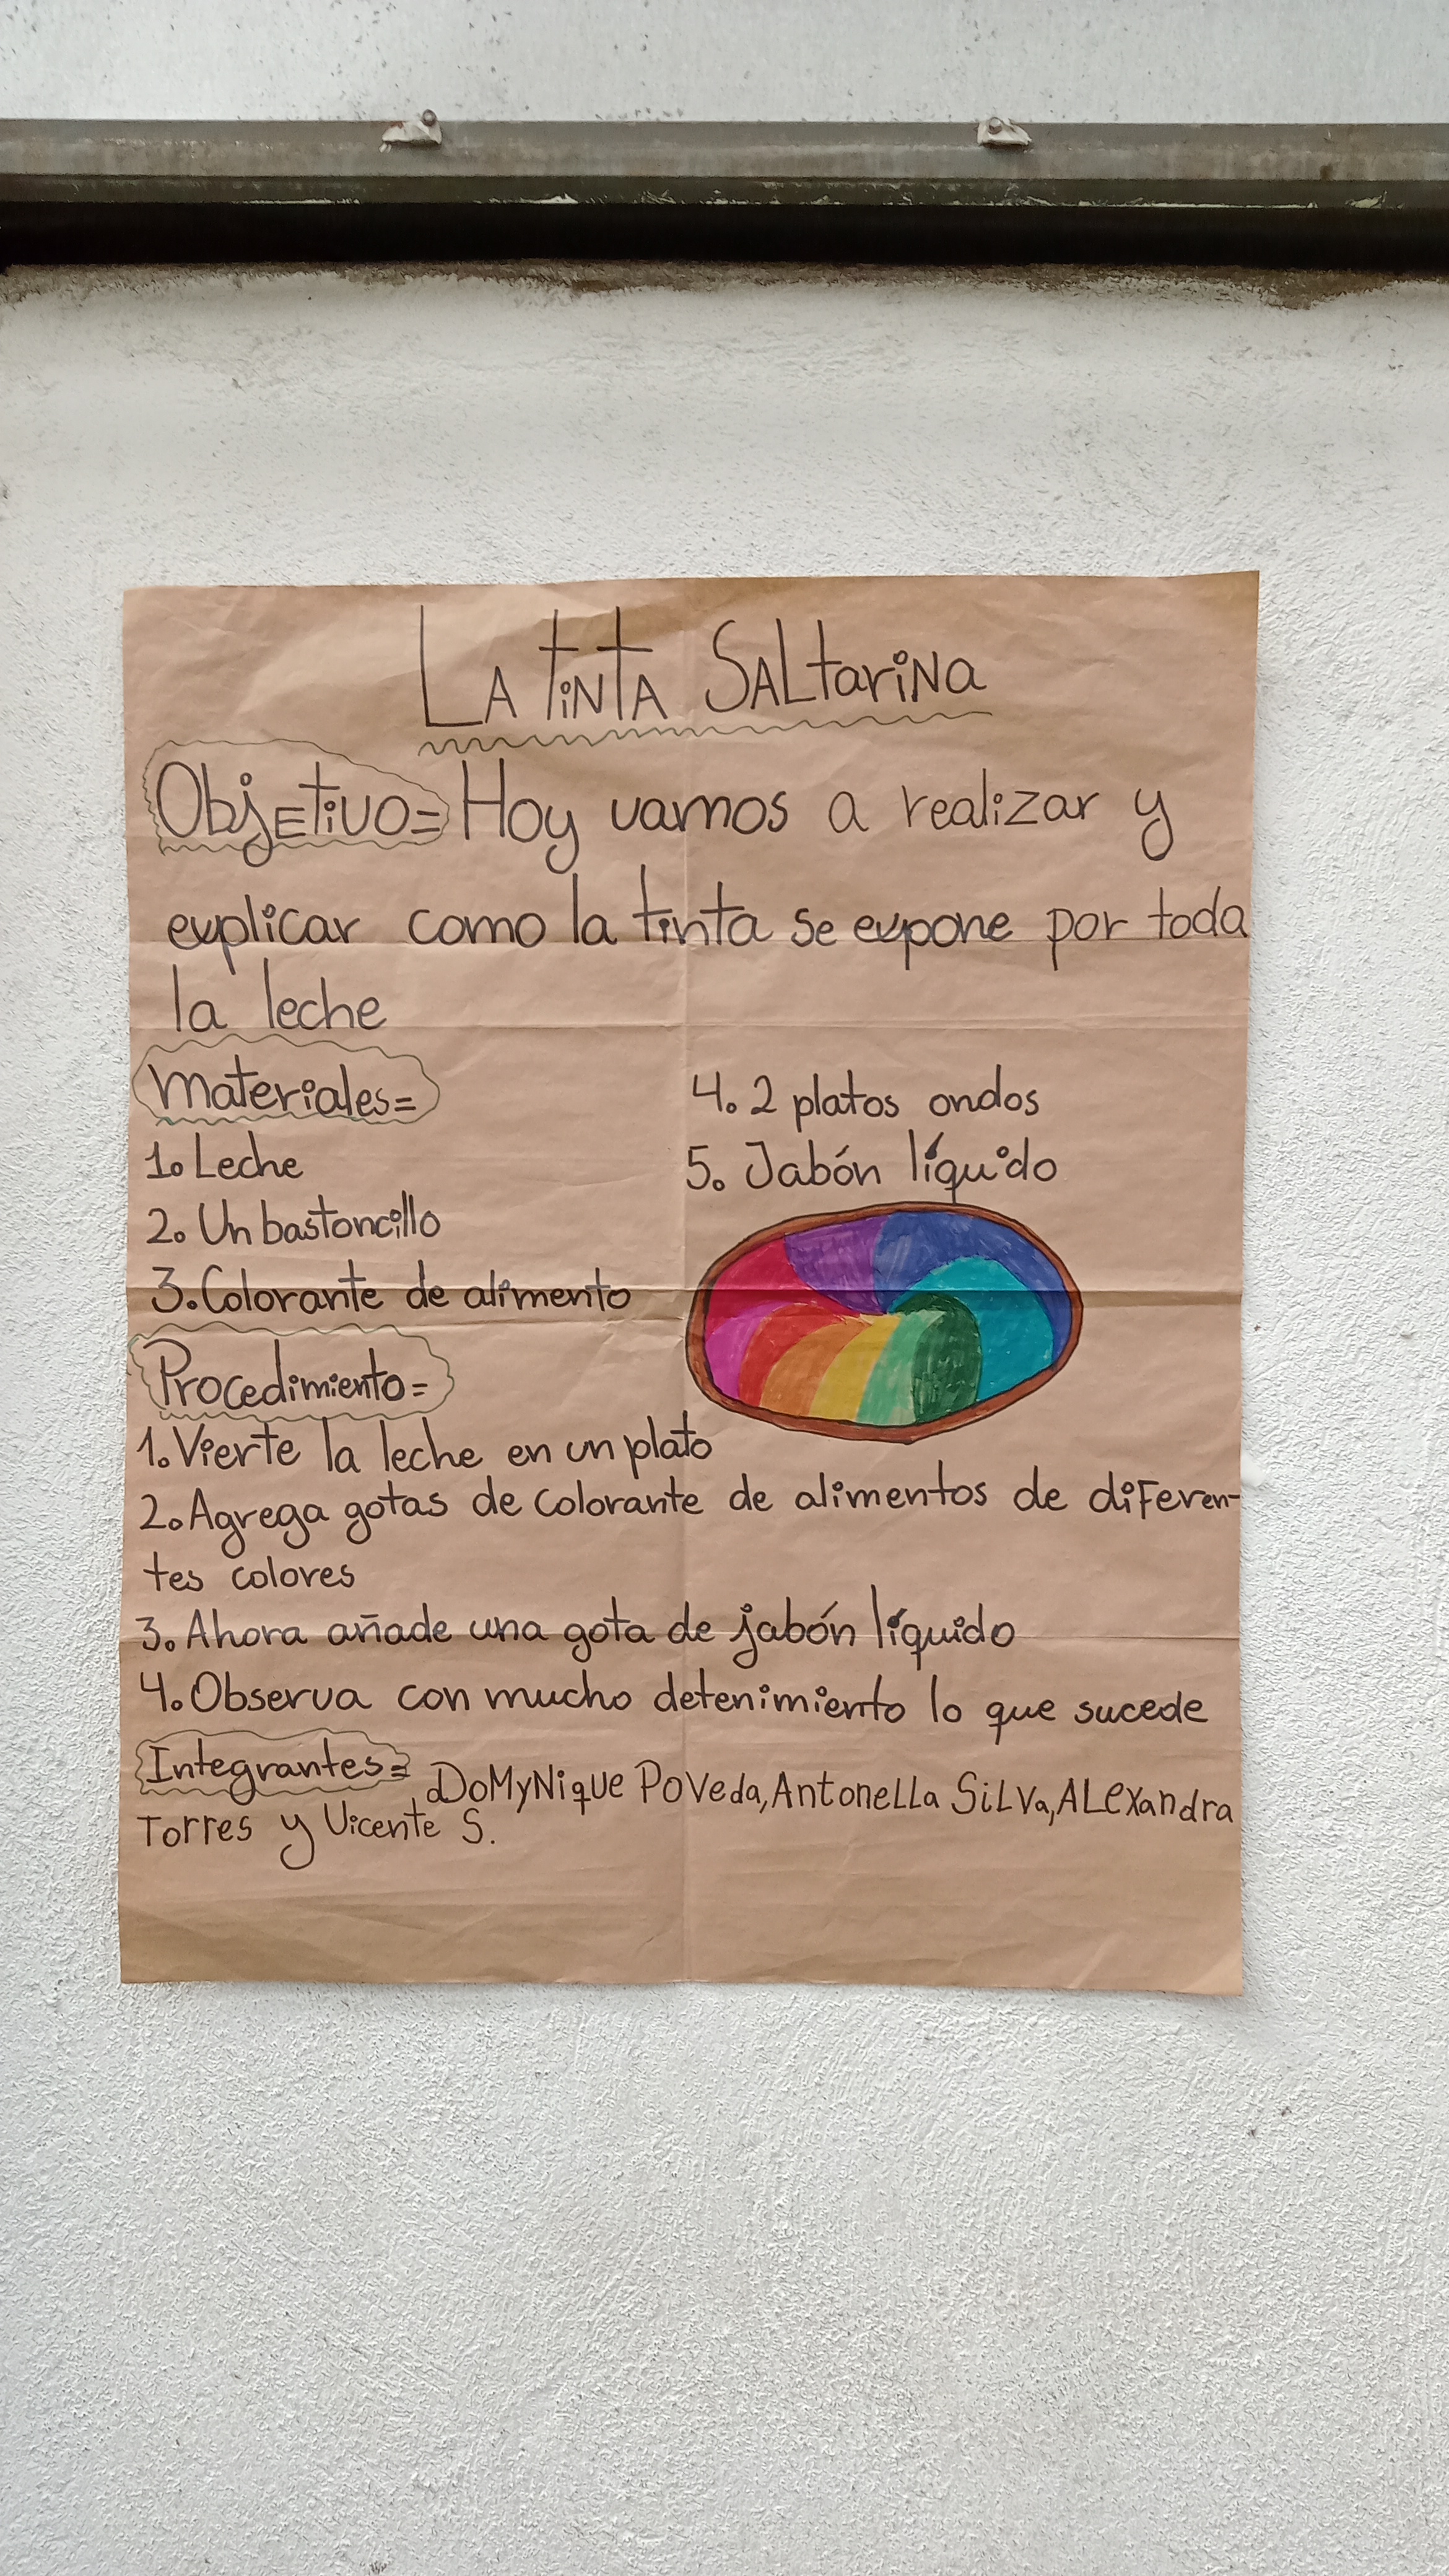 LA tiNtA SALtariNa
ObjEtivo= Hoy vamos a realizar y
explicar como la tinta se expone por toda
la leche
Materiales=
1. Leche
2. Un bastoncillo
3. Colorante de alimento
4. 2 platos ondos
5. Jabón líquido
Procedimiento=
1. Vierte la leche en un plato
2. Agrega gotas de colorante de alimentos de diferen-
tes colores
3. Ahora añade una gota de jabón líquido
4. Observa con mucho detenimiento lo que sucede
Integrantes= DoMyNique PoVeda, AntoneLLa SiLVa, ALexandra
Torres y Vicente S.